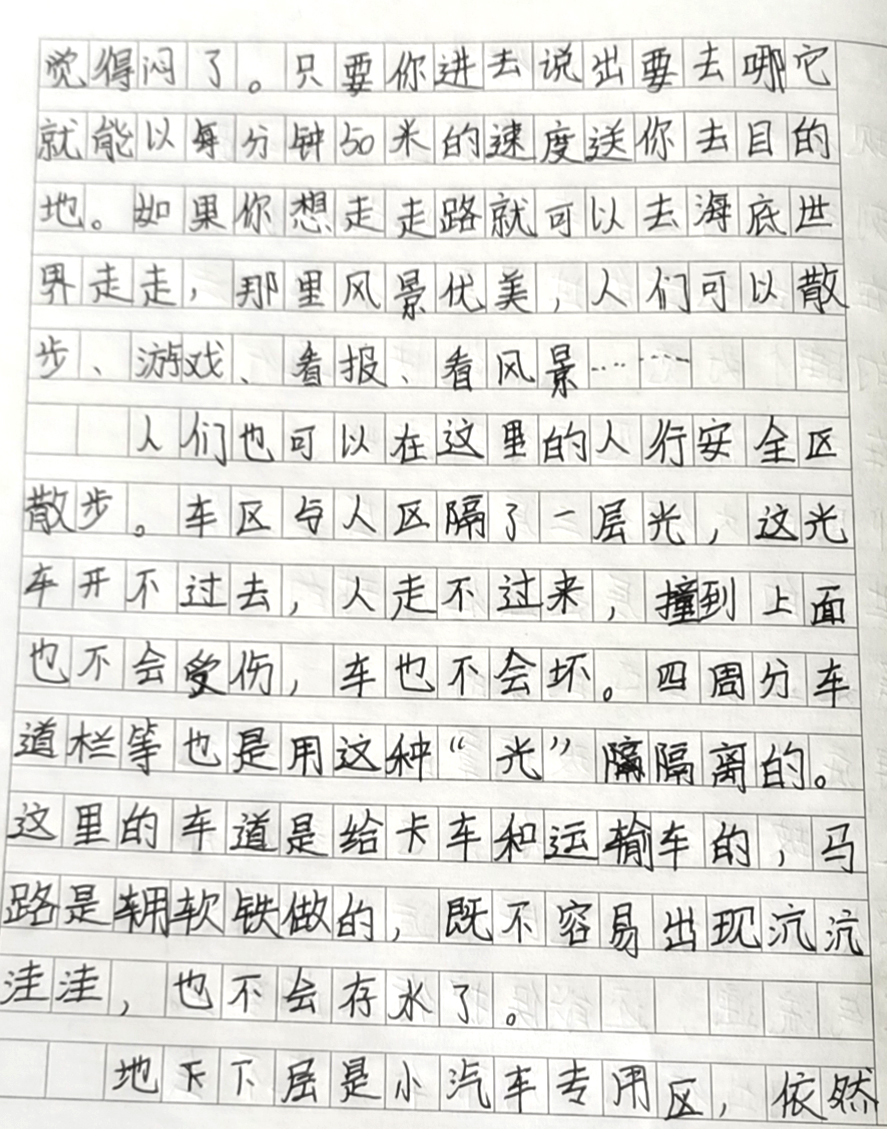 觉得闷了。只要你进去说出要去哪它
就能以每分钟50米的速度送你去目的
地。如果你想走走路就可以去海底世
界走走，那里风景优美，人们可以散
步、游戏、看报、看风景……
人们也可以在这里的人行安全区
散步。车区与人区隔了一层光，这光
车开不过去，人走不过来，撞到上面
也不会受伤，车也不会坏。四周分车
道栏等也是用这种“光”隔隔离的。
这里的车道是给卡车和运输车的，马
路是用软铁做的，既不容易出现沆沆
洼洼，也不会存水了。
地下下层是小汽车专用区，依然